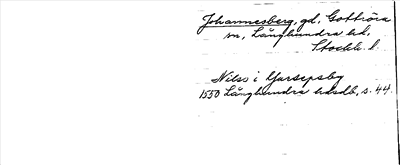 Johannesberg, gd. Gottröra
sn, Långhundra hd,
Stockh. l.
Nilss i
1550 Långhundra hds db, s. 44.